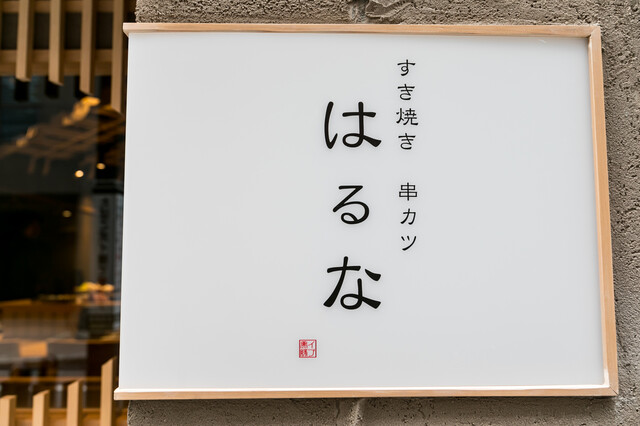 すき焼き 串カツ
はるな